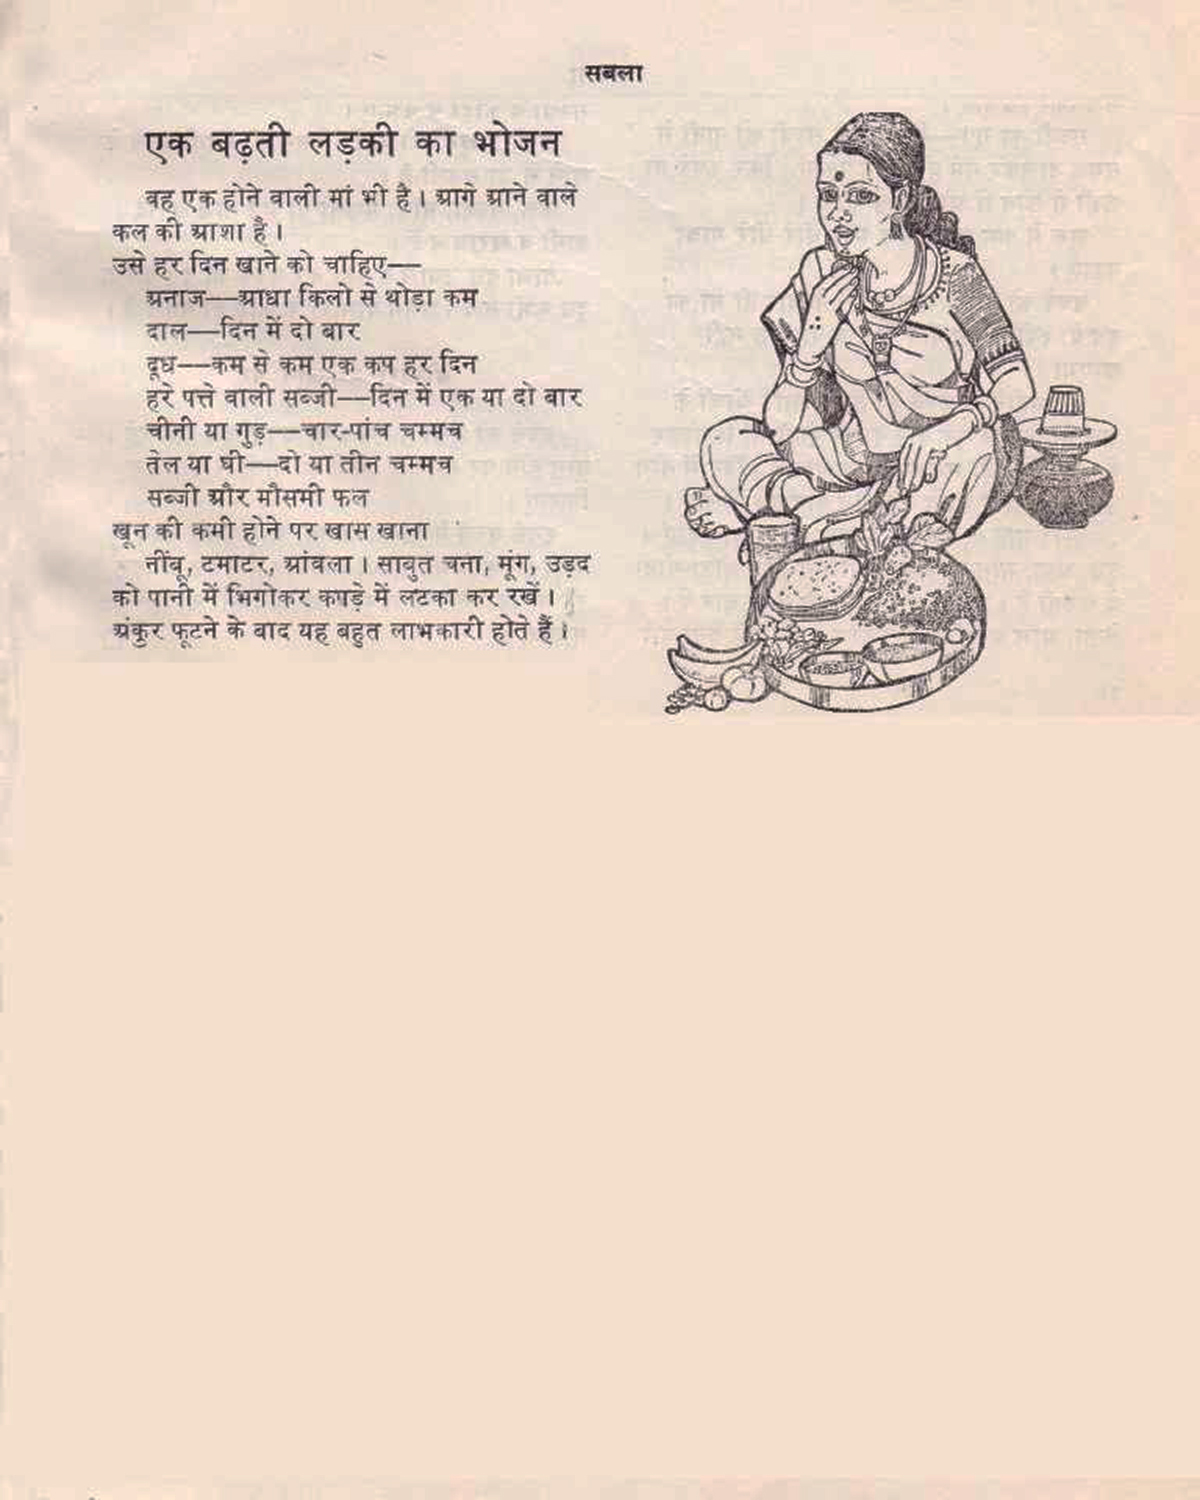 सबला
एक बढ़ती लड़की का भोजन
वह एक होने वाली मां भी है। आगे आने वाले
कल की आशा है।
उसे हर दिन खाने को चाहिए—
अनाज—आधा किलो से थोड़ा कम
दाल—दिन में दो बार
दूध—कम से कम एक कप हर दिन
हरे पत्ते वाली सब्जी—दिन में एक या दो बार
चीनी या गुड़—चार-पांच चम्मच
तेल या घी—दो या तीन चम्मच
सब्जी और मौसमी फल
खून की कमी होने पर खास खाना
नींबू, टमाटर, आंवला। साबुत चना, मूंग, उड़द
को पानी में भिगोकर कपड़े में लटका कर रखें।
अंकुर फूटने के बाद यह बहुत लाभकारी होते हैं।